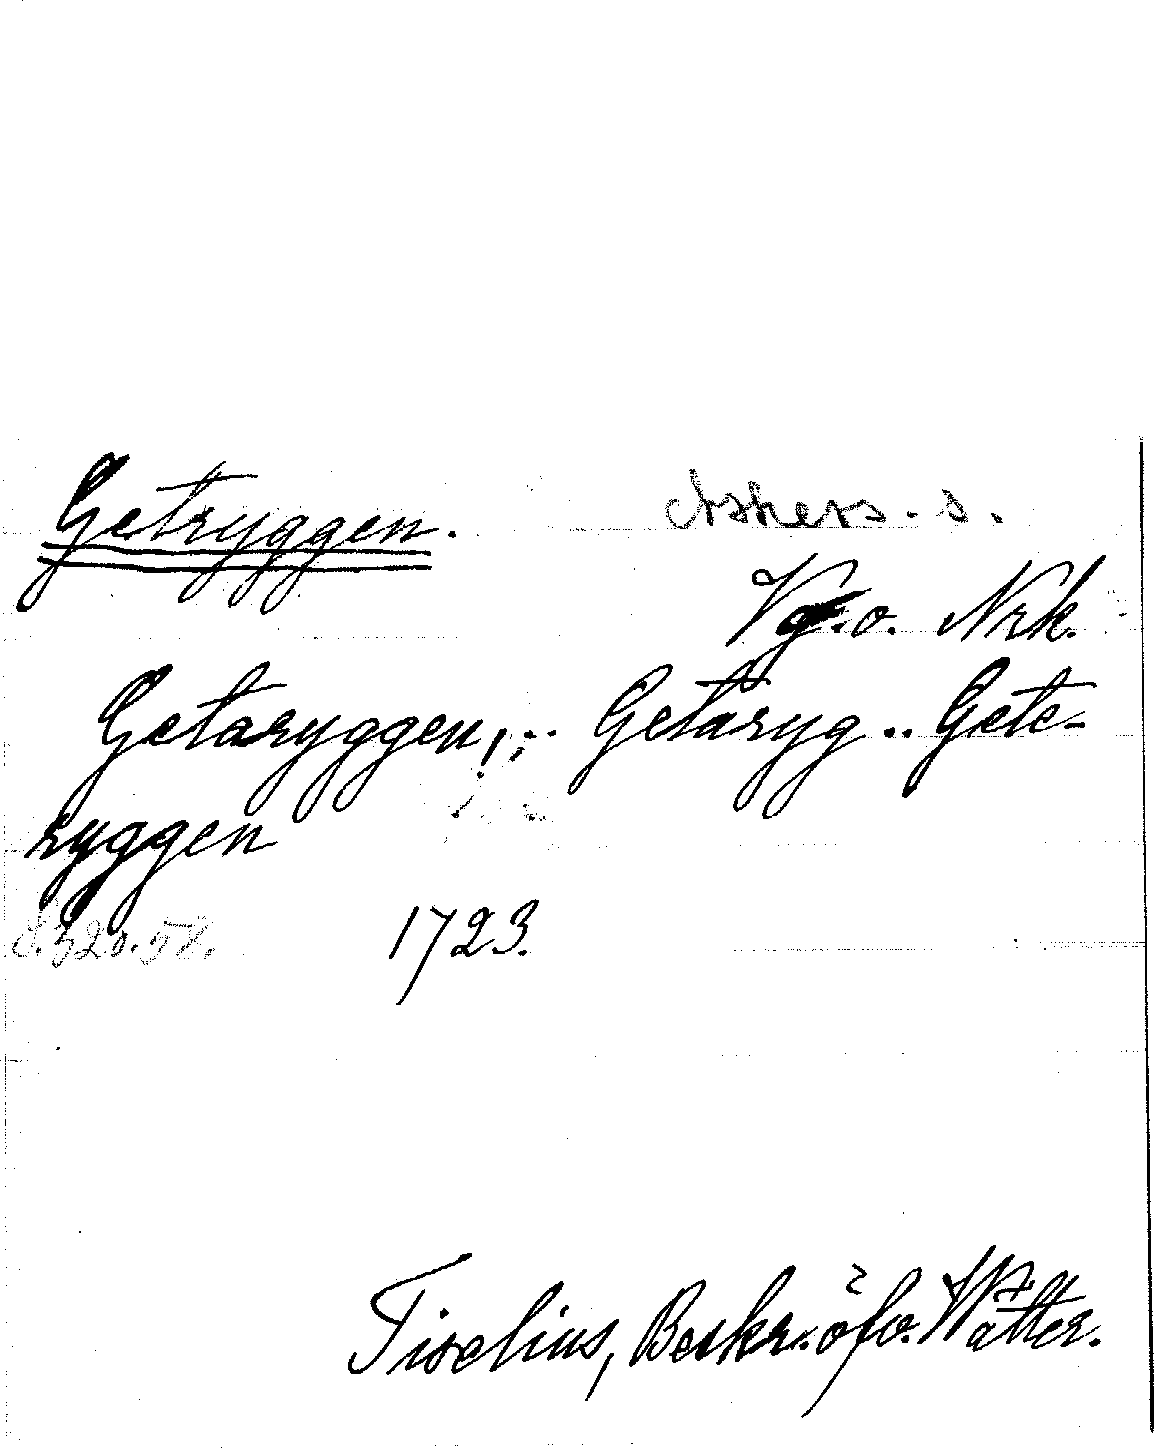 Getryggen. Askers. s.
Vg. o. Nrk.
Getaryggen!,.. Getaryg .. Gete-
ryggen
S. 320. 58. 1723.
Tiselius, Beskr. öfv. Wätter.